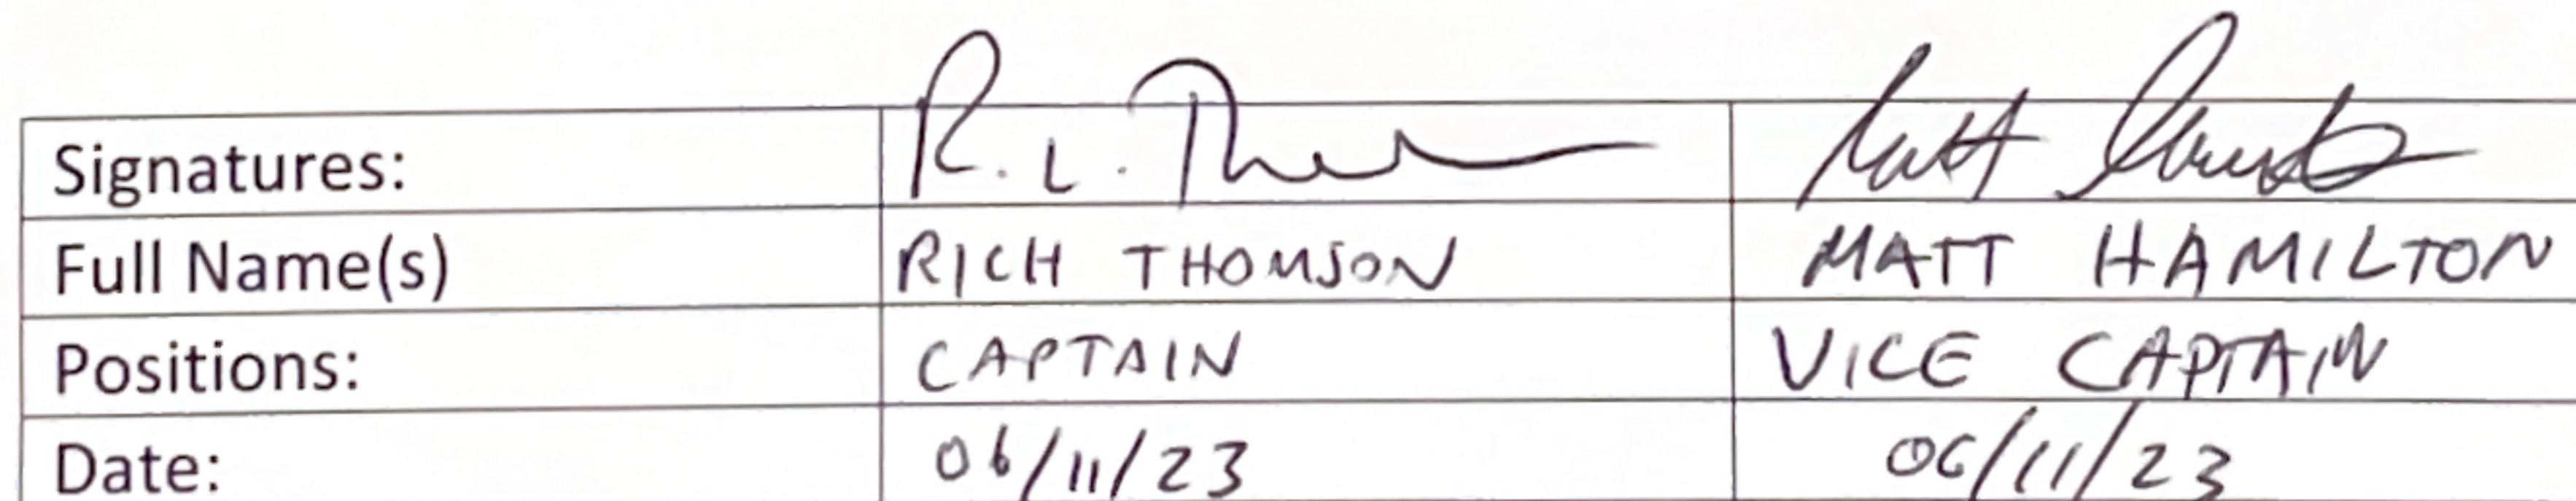 Signatures: R. L. Matt
Full Name(s) RICH THOMSON MATT HAMILTON
Positions: CAPTAIN VICE CAPTAIN
Date: 06/11/23 06/11/23